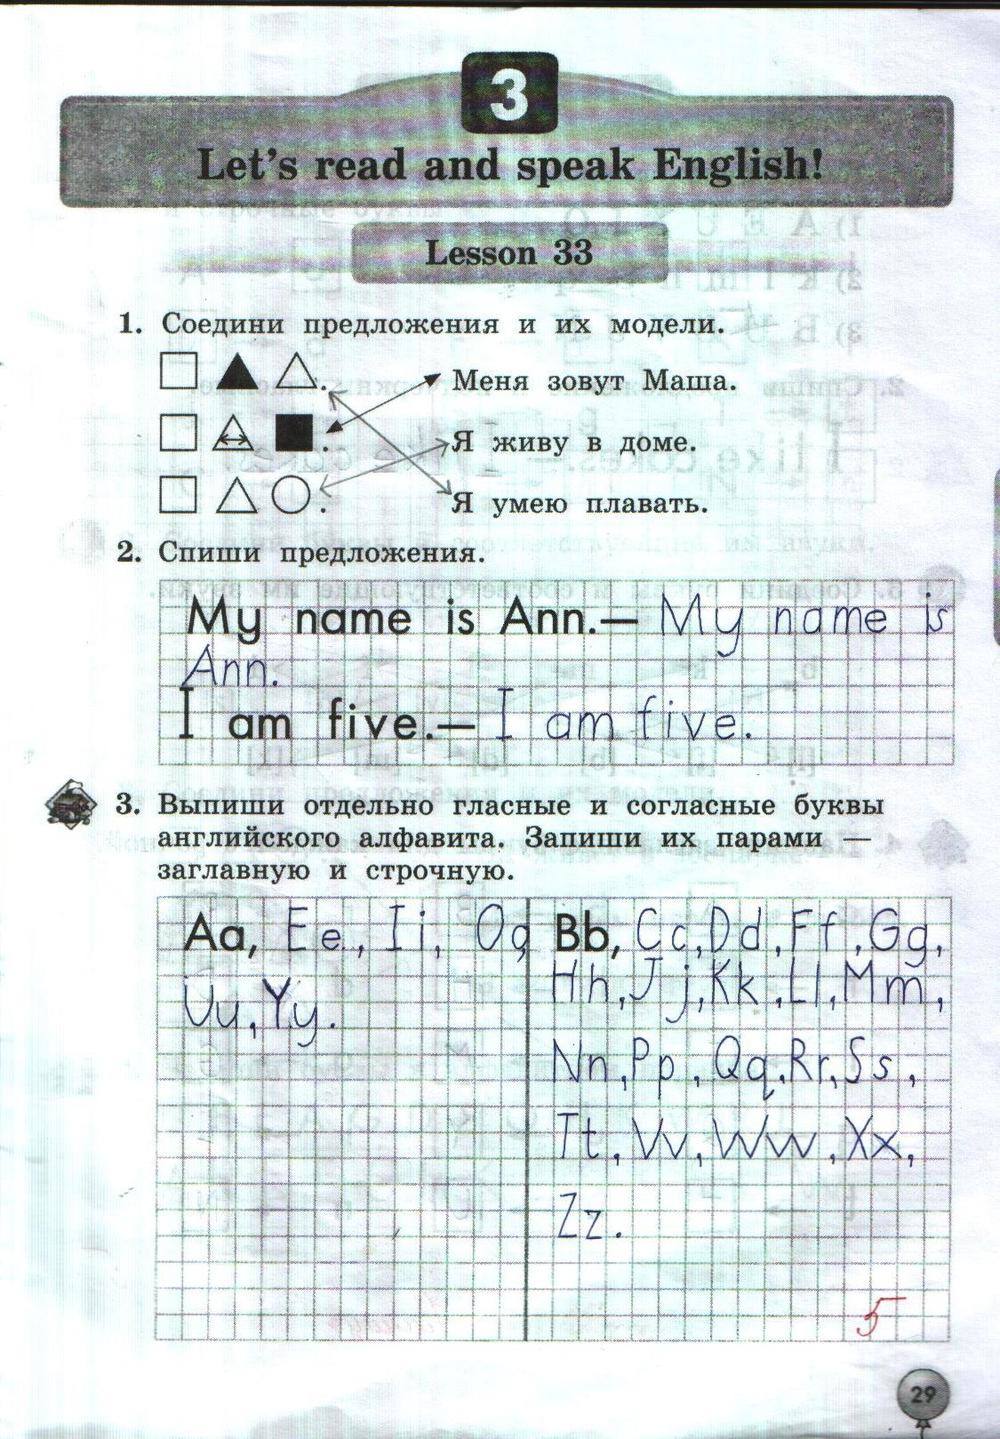 3
Let's read and speak English!
Lesson 33
1. Соедини предложения и их модели.
Меня зовут Маша.
Я живу в доме.
Я умею плавать.
2. Спиши предложения.
My name is Ann.— My name is
Ann.
I am five.— I am five.
3. Выпиши отдельно гласные и согласные буквы
английского алфавита. Запиши их парами —
заглавную и строчную.
Aa, Ee, Ii, Oo
Uu, Yy.
Bb, Cc, Dd, Ff, Gg,
Hh, Jj, Kk, Ll, Mm,
Nn, Pp, Qq, Rr, Ss,
Tt, Vv, Ww, Xx,
Zz.
5
29